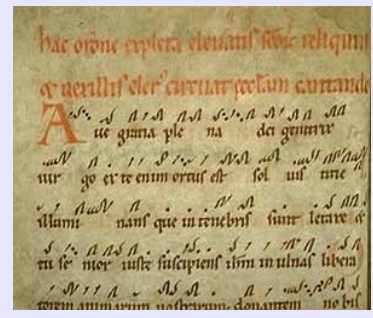 hac oſone expleta eleuatis ſedic reliquiis
& uexillis cler' circuat eccłam cantando
A ue gratia ple na dei genitrix
uir go ex te enim ortus est sol ius titie
illumi nans que in tenebris sunt letare &
tu se nior iuste suscipiens ihm in ulnas libera
torem animarum nostrarum donantem no bis